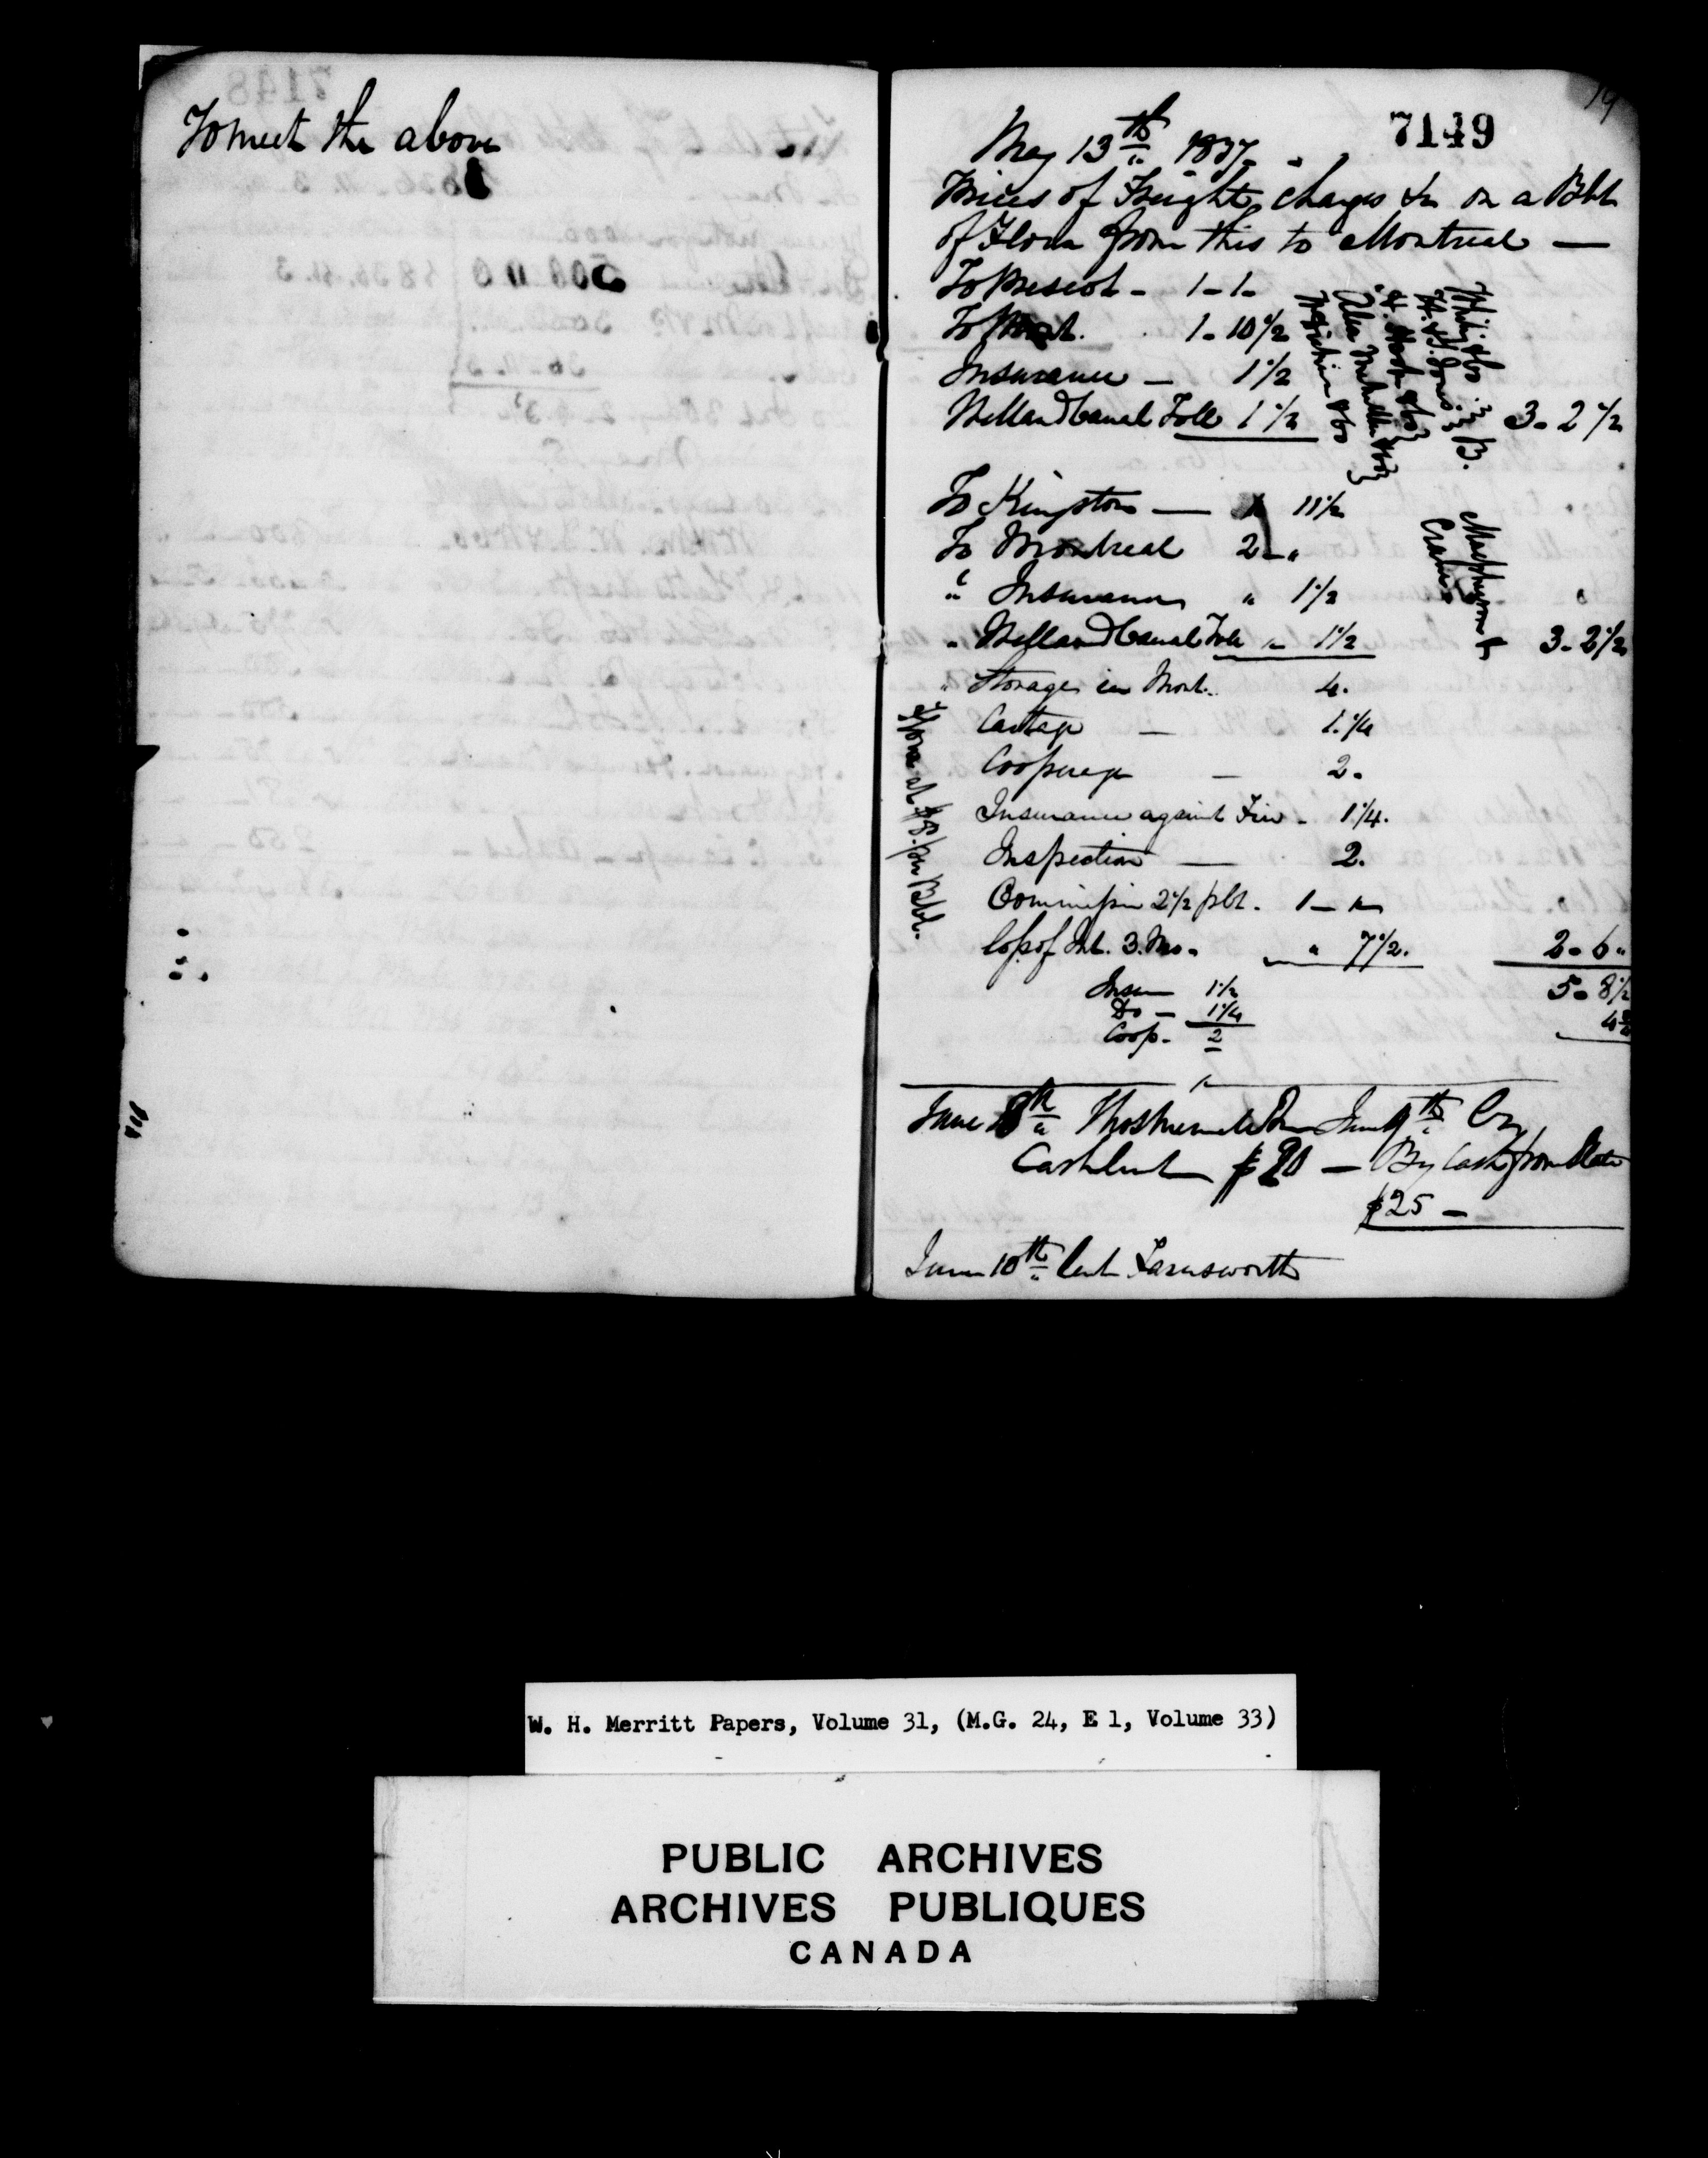 To meet the above
19
7149
May 13th 1837
Prices of Freight, charges &c on a Bbl
of Flour from this to Montreal —
To Prescot - 1-1-
To Mont. 1-10 1/2
Insurance — 1 1/2
Welland Canal Toll 1 1/2 3-2 1/2
To Kingston — 11 1/2
To Montreal 2-"
" Insurance " 1 1/2
" Welland Canal Toll " 1 1/2 3-2 1/2
" Storage in Mont. 4.
Cartage — 1 1/4
Cooperage — 2.
Insurance against Fire - 1 1/4.
Inspection — 2.
Commission 2 1/2 pCt. 1-"
Loss of Int. 3. Mo. " 7 1/2. 2-6"
Flour at $8. per Bbl.
Macpherson &
Crane
5-8 1/2
Insur 1 1/2
Do — 1 1/4
Coop. 2
June 8th Thos Merritt Dr June 9th Cr
Cash lent $20 — By Cash from
$25 —
June 10th lent Farnsworth
W. H. Merritt Papers, Volume 31, (M.G. 24, E 1, Volume 33)
PUBLIC ARCHIVES
ARCHIVES PUBLIQUES
CANADA